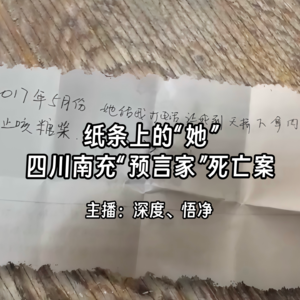 017年5月份 她给我打电话 天桥下
止咳糖浆
纸条上的“她”
四川南充“预言家”死亡案
主播：深度、悟净